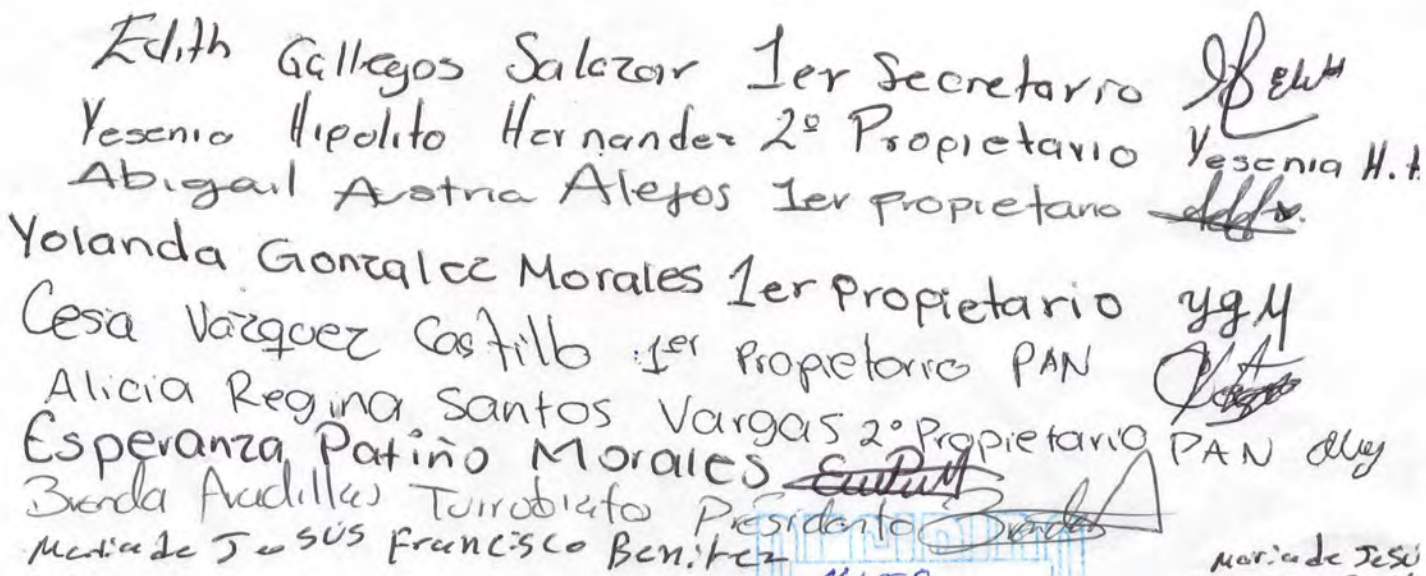 Edith Gallegos Salazar 1er Secretario
Yesenia Hipolito Hernandez 2º Propietario Yesenia H.H
Abigail Austria Alejos 1er propietario
Yolanda Gonzalez Morales 1er propietario ygM
Cesia Vázquez Castillo 1er Propietario PAN
Alicia Regina Santos Vargas 2º Propietario PAN
Esperanza Patiño Morales
Brenda Turrobiato Presidente
Maria de Jesús Francisco Benitez Maria de Jesú